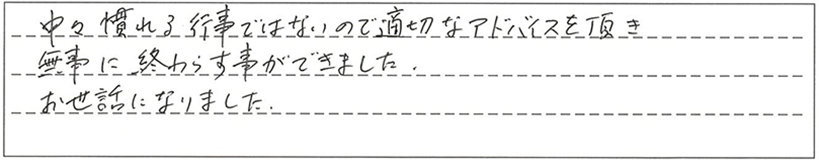 中々慣れる行事ではないので適切なアドバイスを頂き
無事に終わらす事ができました.
お世話になりました.